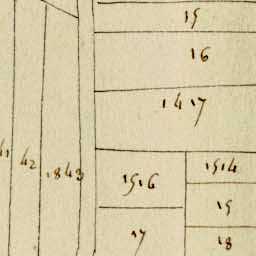 15
16
1417
41 42 1843
1516
1514
15
17
18